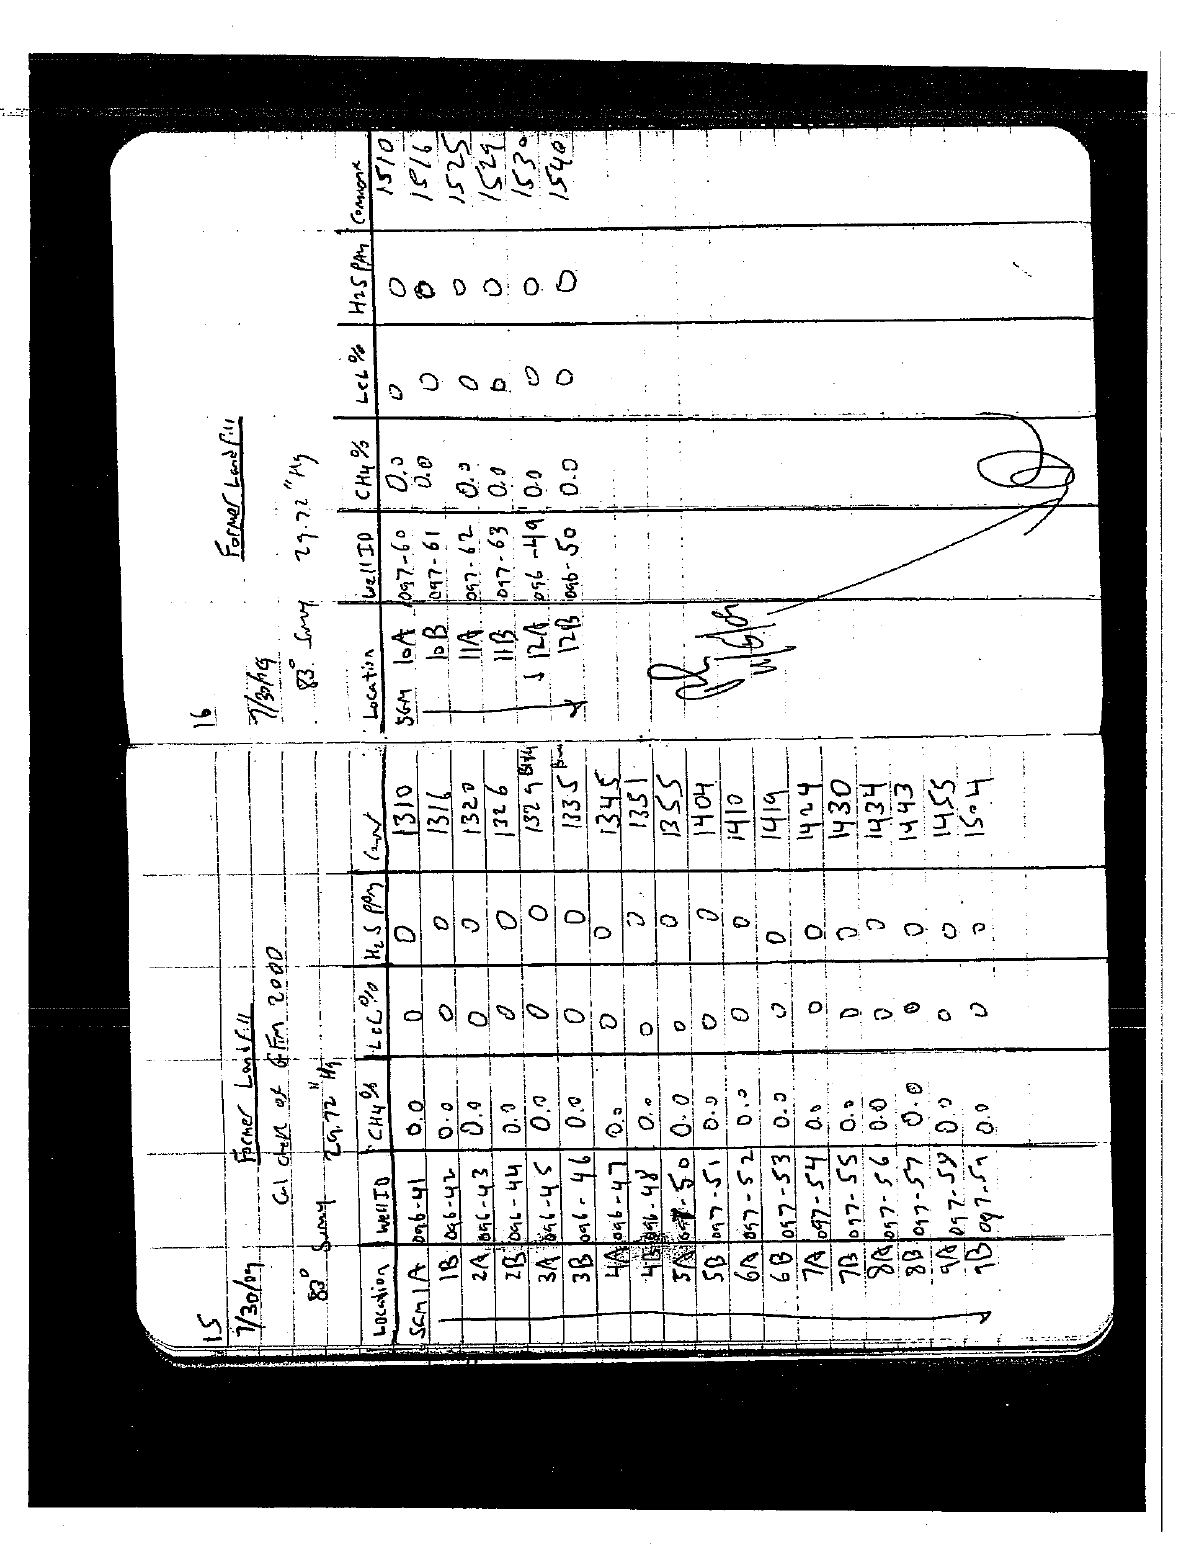 15
7/30/09 Former Landfill
Cal check of GFM 2000
83° Sunny 29.72 "Hg
Location Well ID CH4% LEL% H2S PPM
SGM 1A 096-41 0.0 0 0 1310
1B 096-42 0.0 0 0 1316
2A 096-43 0.0 0 0 1320
2B 096-44 0.0 0 0 1326
3A 096-45 0.0 0 0 1329
3B 096-46 0.0 0 0 1335
4A 096-47 0.0 0 0 1345
4B 096-48 0.0 0 0 1351
5A 097-50 0.0 0 0 1355
5B 097-51 0.0 0 0 1404
6A 097-52 0.0 0 0 1410
6B 097-53 0.0 0 0 1419
7A 097-54 0.0 0 0 1424
7B 097-55 0.0 0 0 1430
8A 097-56 0.0 0 0 1434
8B 097-57 0.0 0 0 1443
9A 097-58 0.0 0 0 1455
9B 097-59 0.0 0 0 1504
16
7/30/09 Former Landfill
83° Sunny 29.72 "Hg
Location Well ID CH4% LEL% H2S PPM
SGM 10A 097-60 0.0 0 0 1510
10B 097-61 0.0 0 0 1516
11A 097-62 0.0 0 0 1525
11B 097-63 0.0 0 0 1529
12A 096-49 0.0 0 0 1530
12B 096-50 0.0 0 0 1540